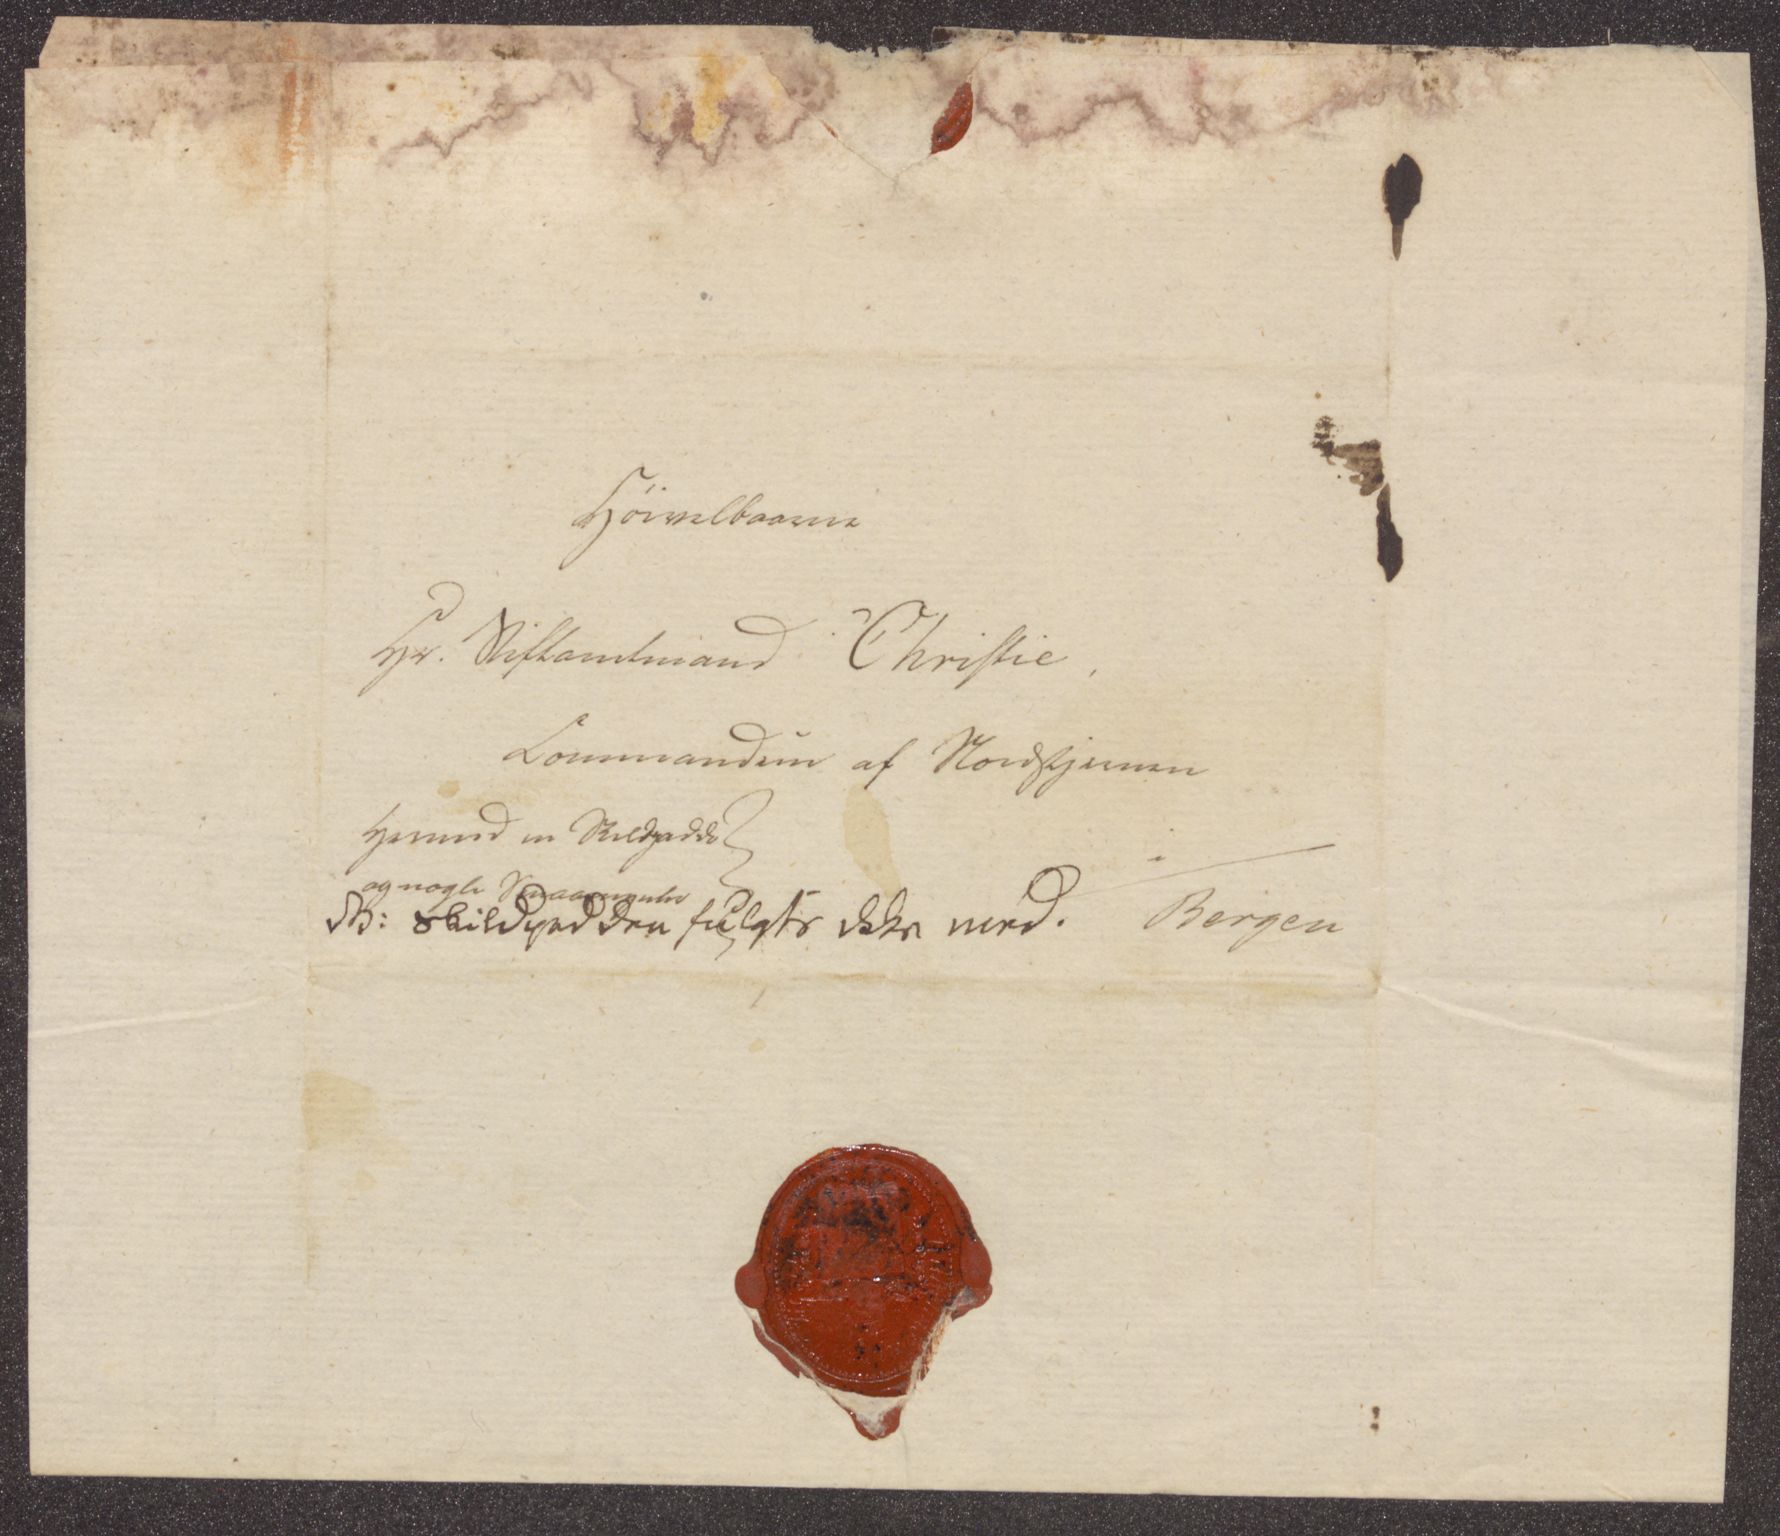 Höivelbaarne
Hr. Stiftamtmand Christie,
Commandeur af Nordstjernen
Hermed en Skildpadde
og nogle Smaamynter
NB: Skildpadden fulgte ikke med.
Bergen